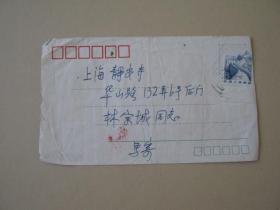 上海 静安寺
华山路 132弄6号后门
林宝城 同志